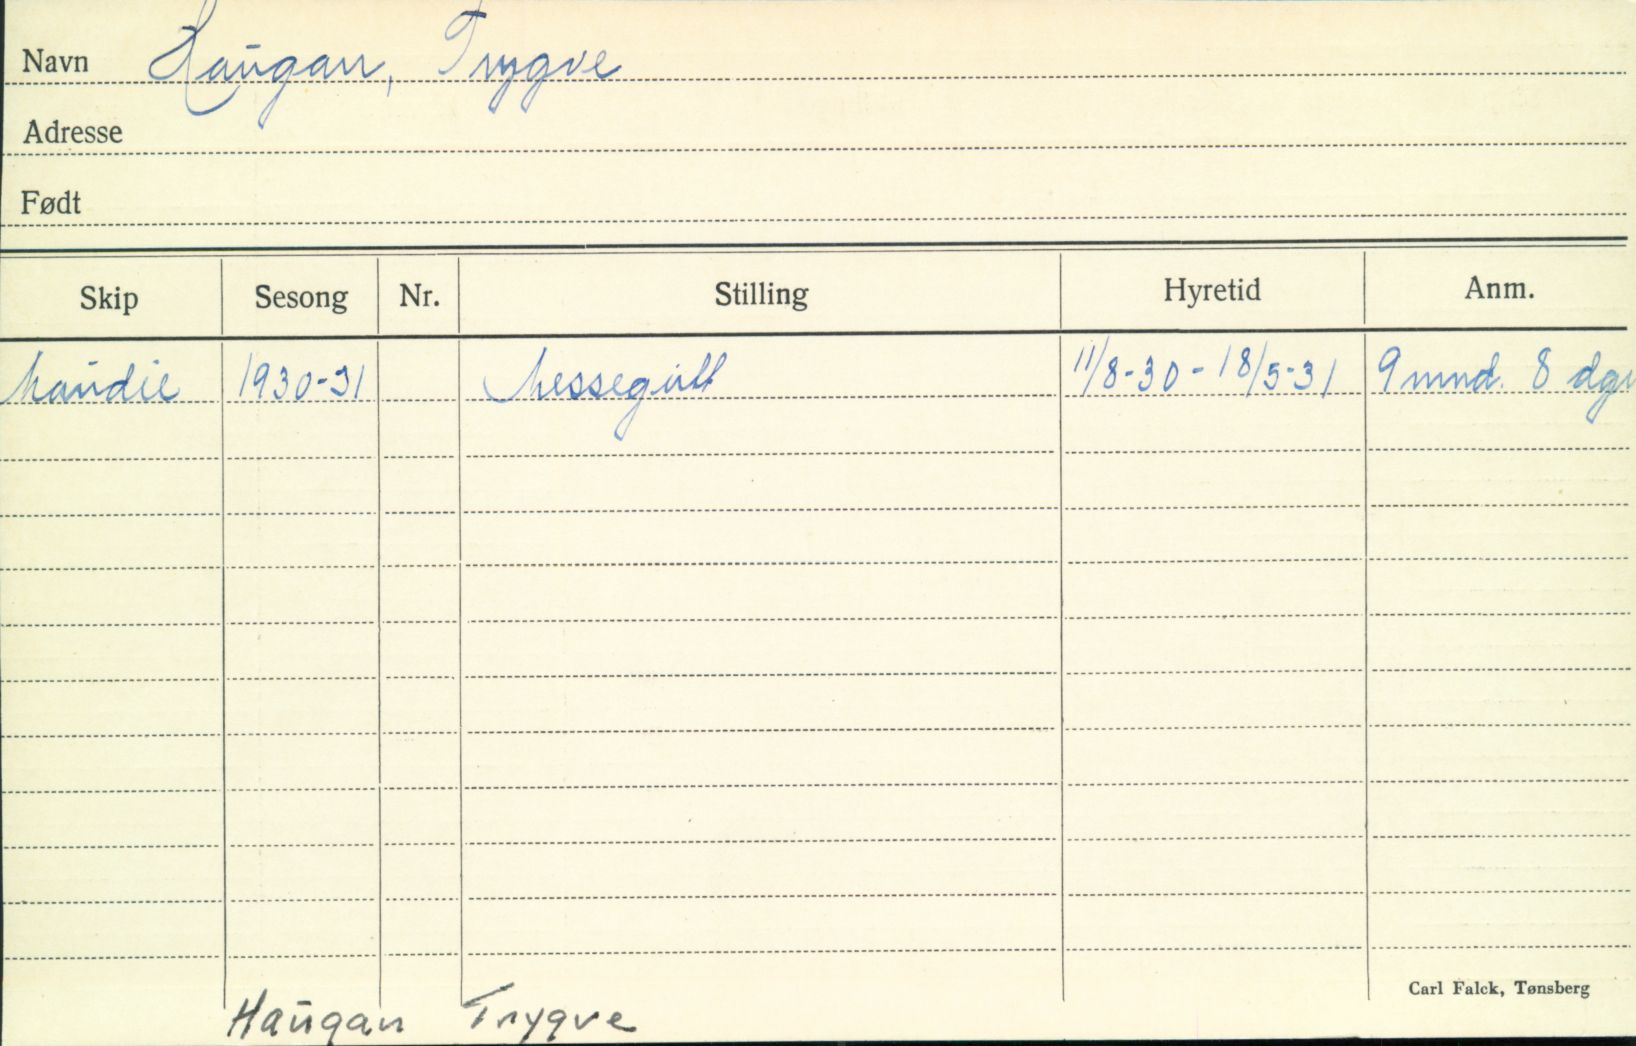 Navn Haugan, Trygve
Adresse
Født
Skip Sesong Nr. Stilling Hyretid Anm.
Maudie 1930-31 Messegutt 11/8-30 - 18/5-31 9 mnd. 8 dgr
Carl Falck, Tønsberg
Haugan Trygve